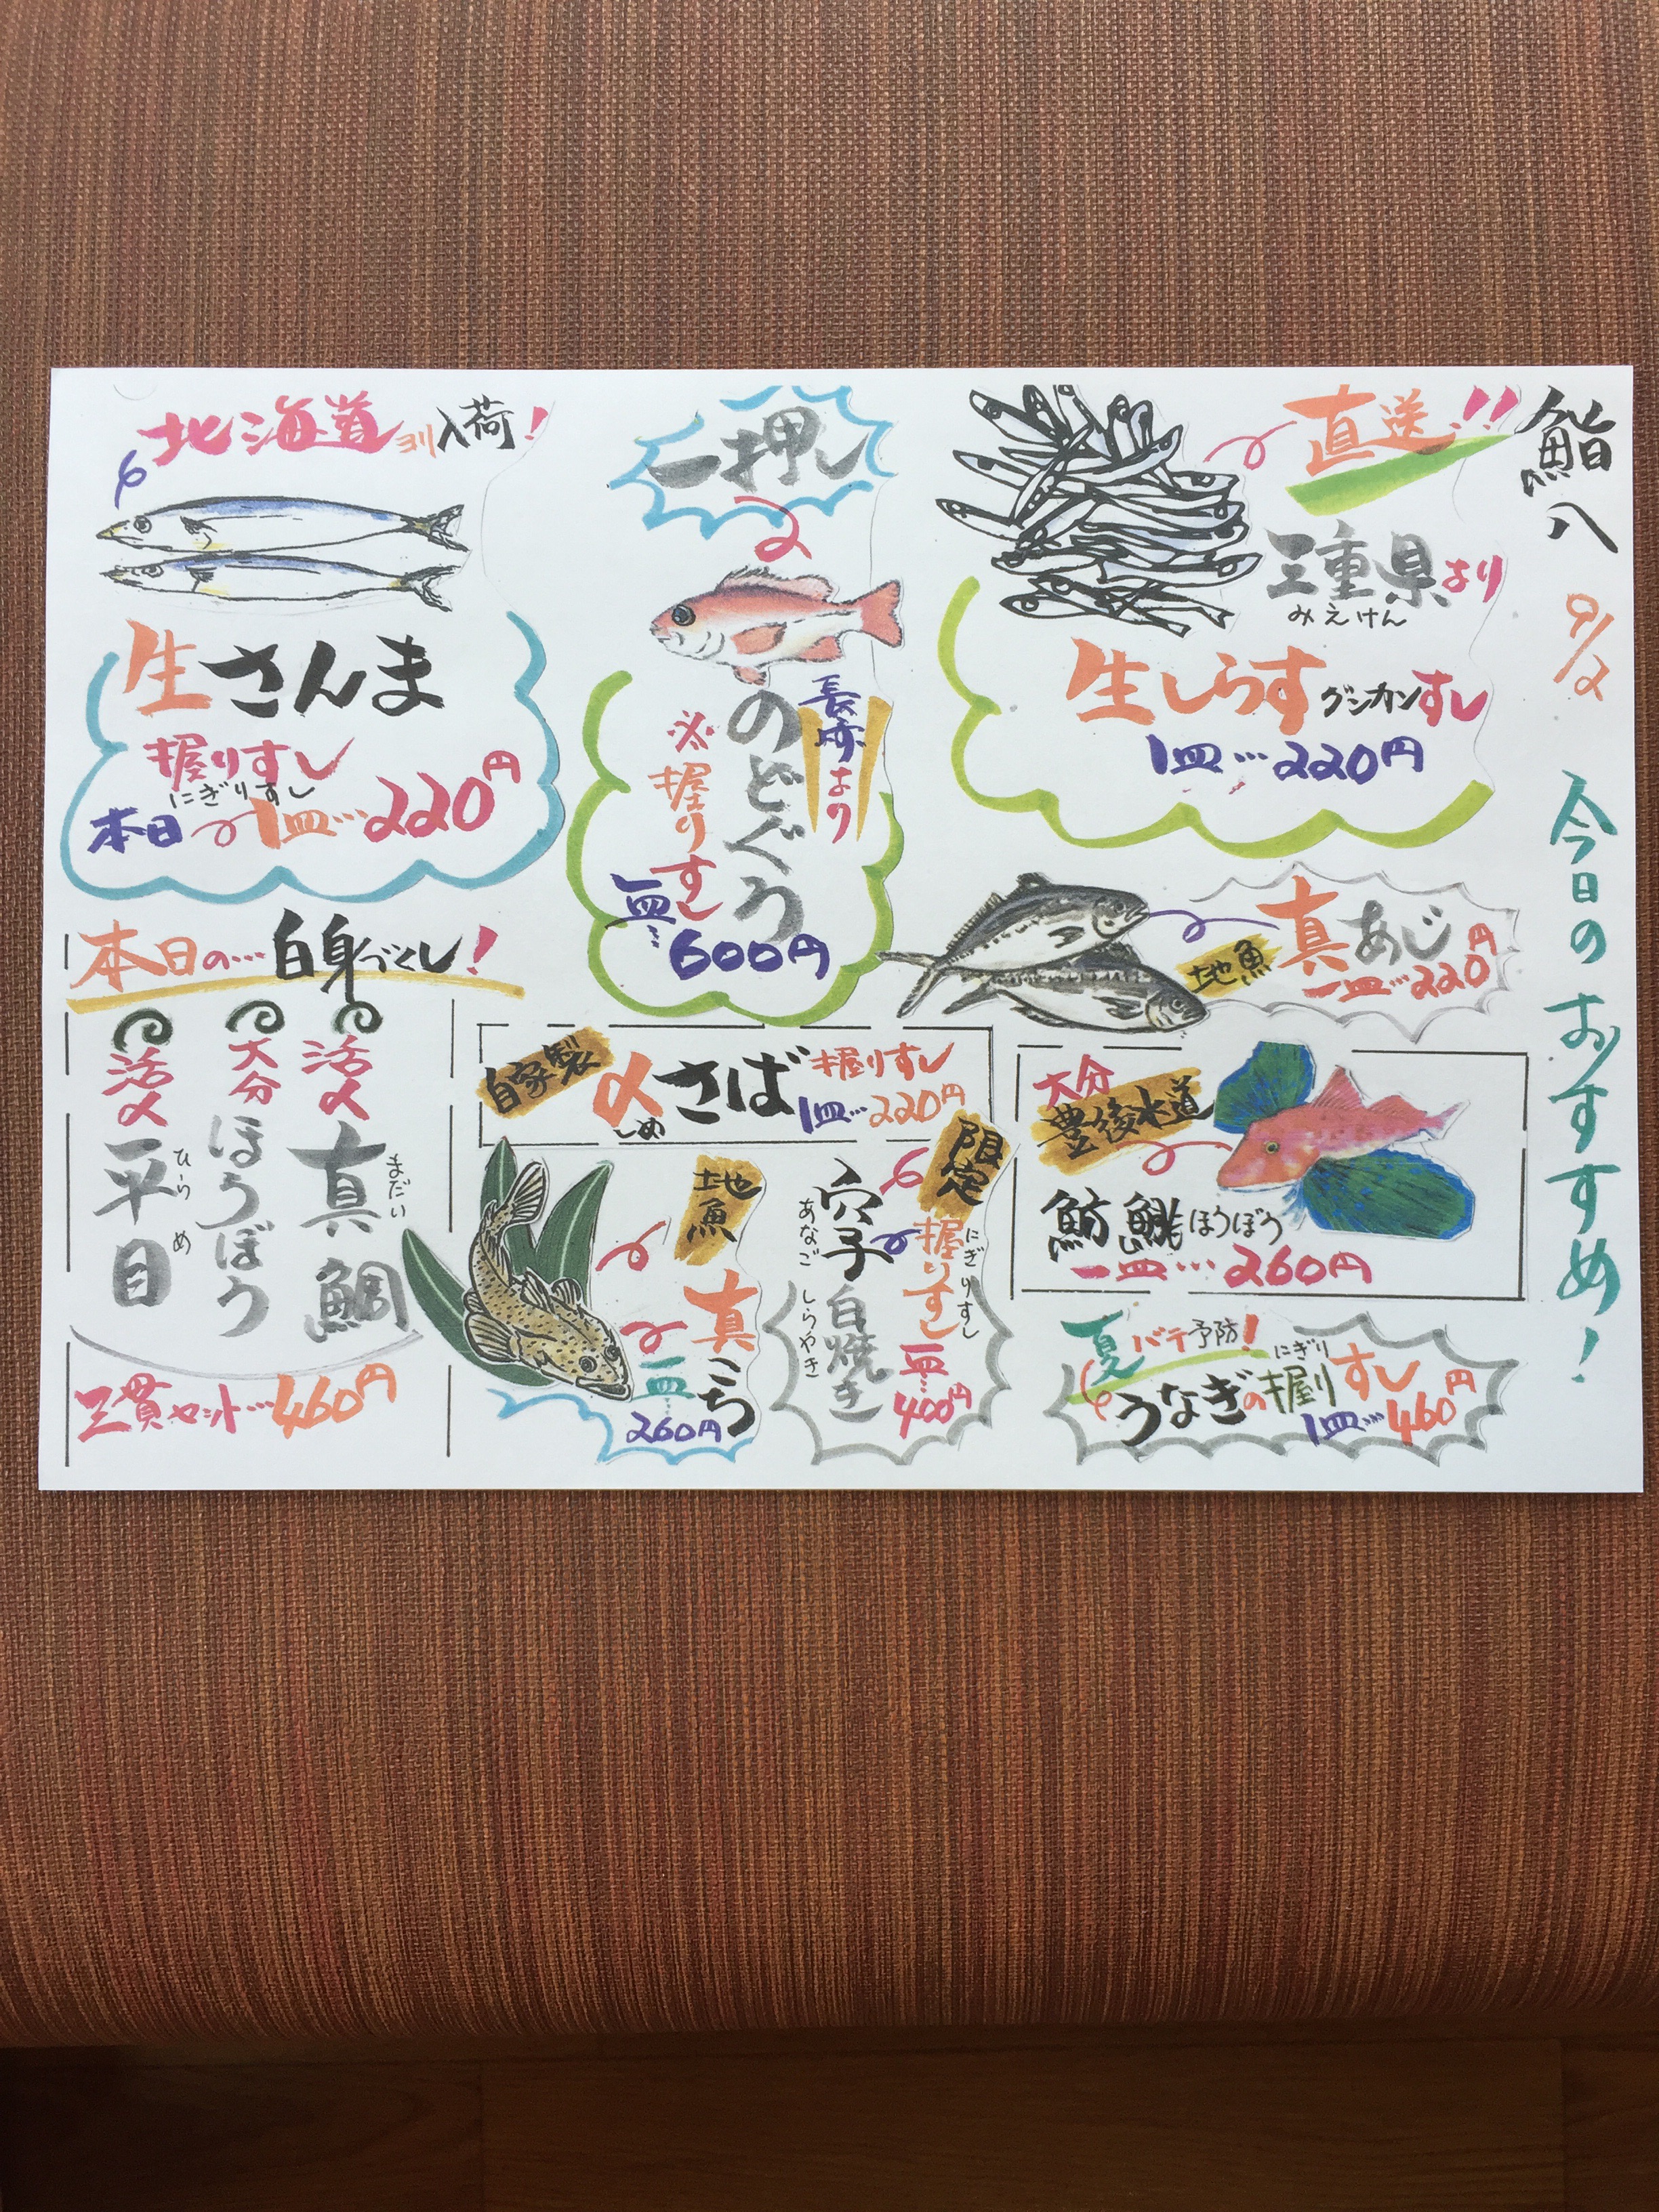 鮨八
9/2
今日のおすすめ!
直送!!
三重県より
みえけん
生しらすグンカンすし
1皿…220円
一押し
長崎より
のどぐろ
※握りすし
一皿…
600円
北海道ヨリ入荷!
生さんま
握りすし
にぎりすし
本日1皿…220円
地魚
真あじ
一皿…220円
本日の…白身づくし!
活〆
真鯛
まだい
大分
ほうぼう
活〆
平目
ひらめ
三貫セット…460円
自家製
〆さば
しめ
握りすし
1皿…220円
大分
豊後水道
魴鮄ほうぼう
一皿…260円
地魚
真こち
一皿…
260円
限定
穴子白焼き
あなごしらやき
握りすし
にぎりすし
一皿…
400円
夏バテ予防!
うなぎの握りすし
にぎり
1皿…460円